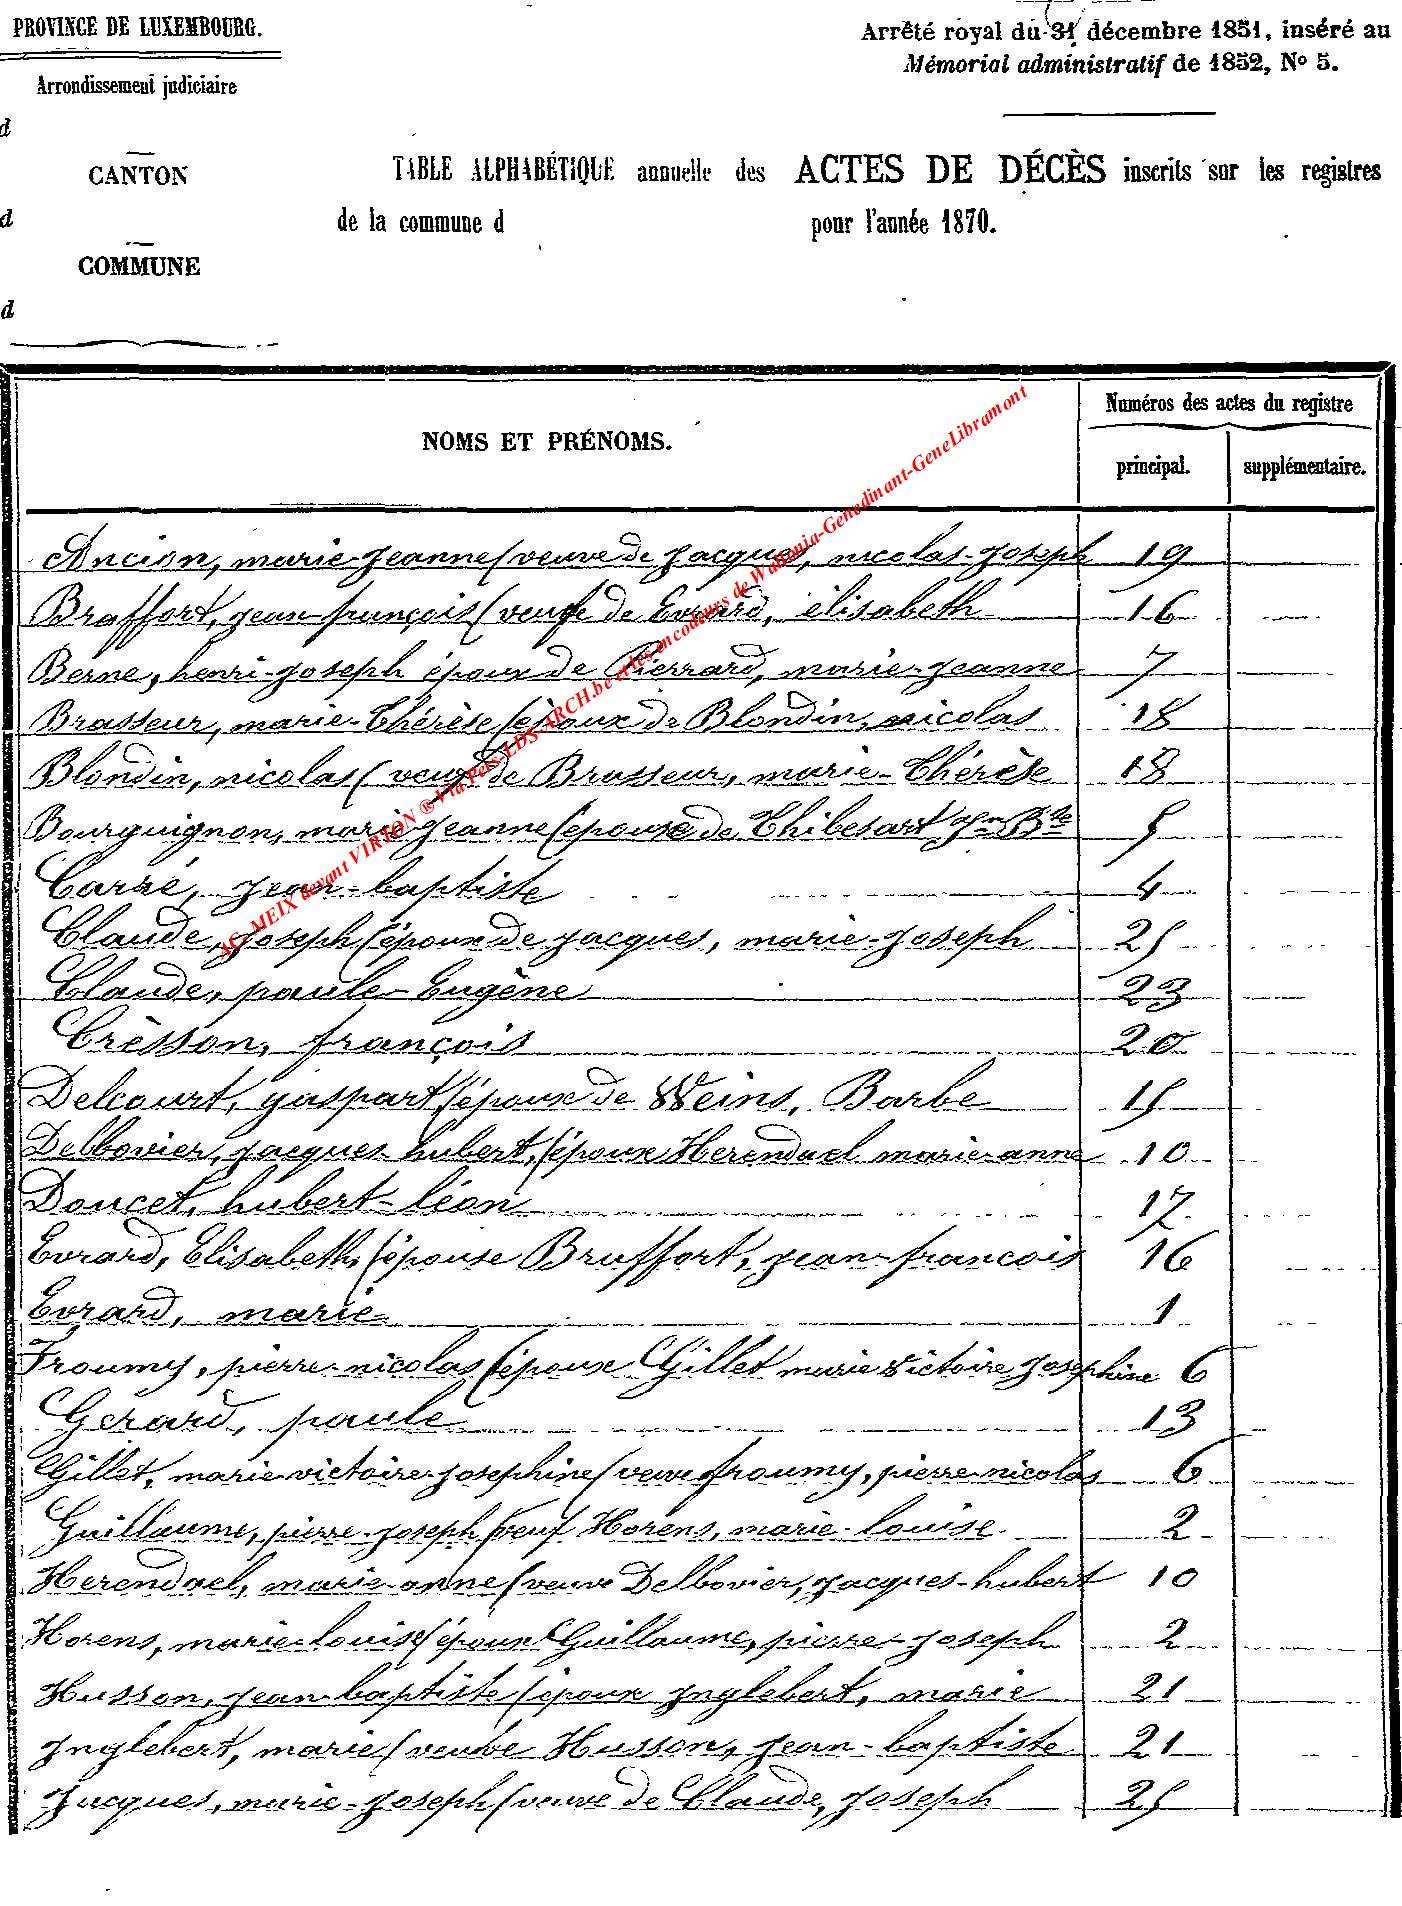 PROVINCE DE LUXEMBOURG.
Arrêté royal du 31 décembre 1851, inséré au
Mémorial administratif de 1852, No 5.
Arrondissement judiciaire
d
CANTON
d
COMMUNE
d
TABLE ALPHABÉTIQUE annuelle des ACTES DE DÉCÈS inscrits sur les registres
de la commune d pour l'année 1870.
NOMS ET PRÉNOMS.
Numéros des actes du registre
principal. supplémentaire.
AG MEIX devant VIRTON ® Via Pers-LDS-ARCH.be et les encodeurs de Wallonia-Genedinant-GeneLibramont
Ancion, marie-jeanne (veuve de jacques, nicolas-joseph 19
Braffort, jean-françois (veuf de Evrard, élisabeth 16
Berne, henri-joseph époux de Pierrard, marie-jeanne 7
Brasseur, marie-Thérèse (époux de Blondin, nicolas 18
Blondin, nicolas (veuf de Brasseur, marie-Thérèse 18
Bourguignon, marie-jeanne (épouse de Thibesart Jn Bte 5
Carré, jean-baptiste 4
Claude, joseph (époux de jacques, marie-joseph 25
Claude, paule-Eugène 23
Crèsson, françois 20
Delcourt, gaspart (époux de Weins, Barbe 15
Delbovier, jacques-hubert, (époux Herendael marie-anne 10
Doucet, hubert-léon 17
Evrard, Elisabeth, (épouse Braffort, jean-francois 16
Evrard, marie 1
Froumy, pierre-nicolas (époux Gillet marie victoire josephine 6
Gérard, paule 13
Gillet, marie-victoire-josephine (veuve froumy, pierre-nicolas 6
Guillaume, pierre-joseph (veuf Horens, marie-louise 2
Herendael, marie-anne (veuve Delbovier, jacques-hubert 10
Horens, marie-louise (époux Guillaume, pierre-joseph 2
Husson, jean-baptiste (époux Inglebert, marie 21
Inglebert, marie (veuve Husson, jean-baptiste 21
Jacques, marie-joseph (veuve de Claude, joseph 25